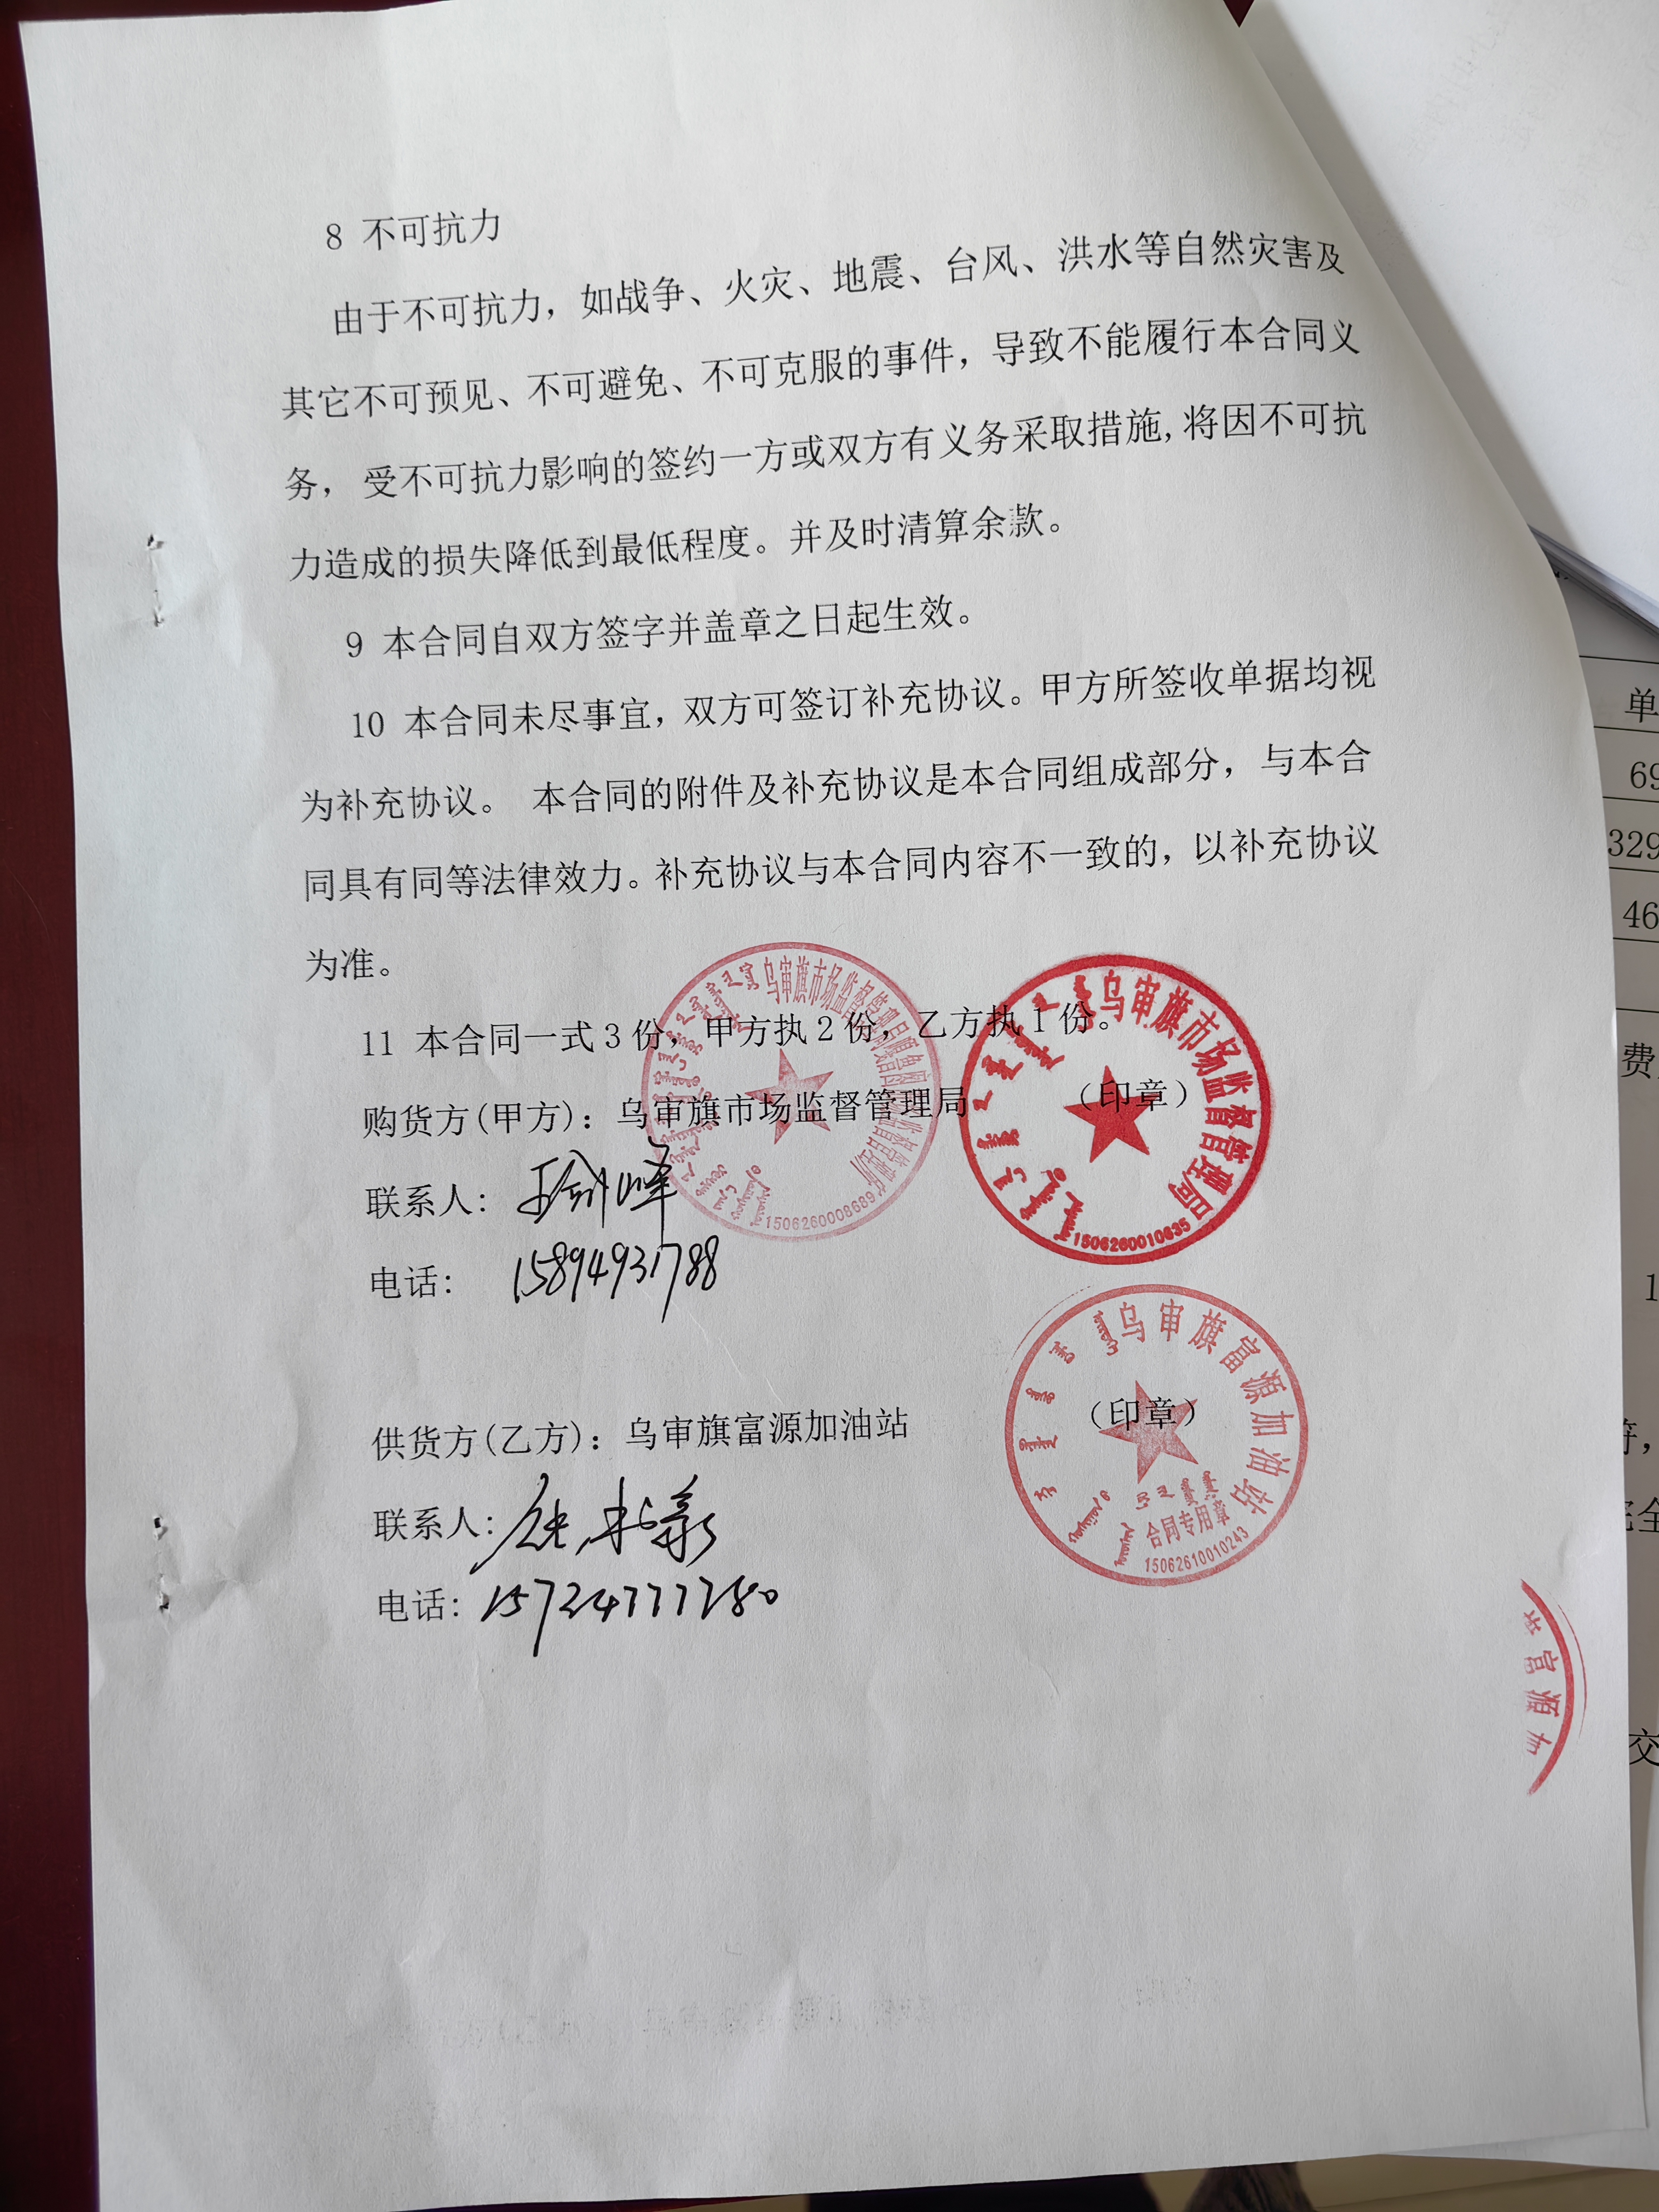 8 不可抗力
由于不可抗力，如战争、火灾、地震、台风、洪水等自然灾害及
其它不可预见、不可避免、不可克服的事件，导致不能履行本合同义
务， 受不可抗力影响的签约一方或双方有义务采取措施,将因不可抗
力造成的损失降低到最低程度。并及时清算余款。
9 本合同自双方签字并盖章之日起生效。
10 本合同未尽事宜，双方可签订补充协议。甲方所签收单据均视
为补充协议。 本合同的附件及补充协议是本合同组成部分，与本合
同具有同等法律效力。补充协议与本合同内容不一致的，以补充协议
为准。
11 本合同一式3份，甲方执2份，乙方执1份。
购货方(甲方)：乌审旗市场监督管理局 （印章）
乌审旗市场监督管理局
1506260008689
乌审旗市场监督管理局
1506260010635
联系人:
电话: 15894931788
供货方(乙方)：乌审旗富源加油站 （印章）
乌审旗富源加油站
合同专用章
15062610010243
联系人:
电话: 15724777280
富源
单
69
329
46
费
1
交